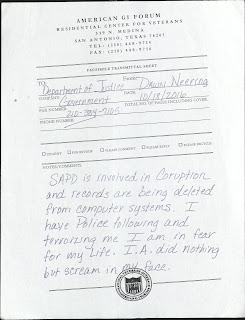 AMERICAN GI FORUM
RESIDENTIAL CENTER FOR VETERANS
339 N. MEDINA
SAN ANTONIO, TEXAS 78207
FACSIMILE TRANSMITTAL SHEET
TO: FROM:
Department of Justice Dawn Neering
COMPANY: DATE:
Government 10/18/2016
FAX NUMBER: TOTAL NO. OF PAGES INCLUDING COVER:
PHONE NUMBER:
URGENT FOR REVIEW PLEASE COMMENT PLEASE REPLY PLEASE RECYCLE
NOTES/COMMENTS:
SAPD is involved in Coruption
and records are being deleted
from computer systems. I
have Police following and
terrorizing me I am in fear
for my Life. I.A. did nothing
but scream in my face.